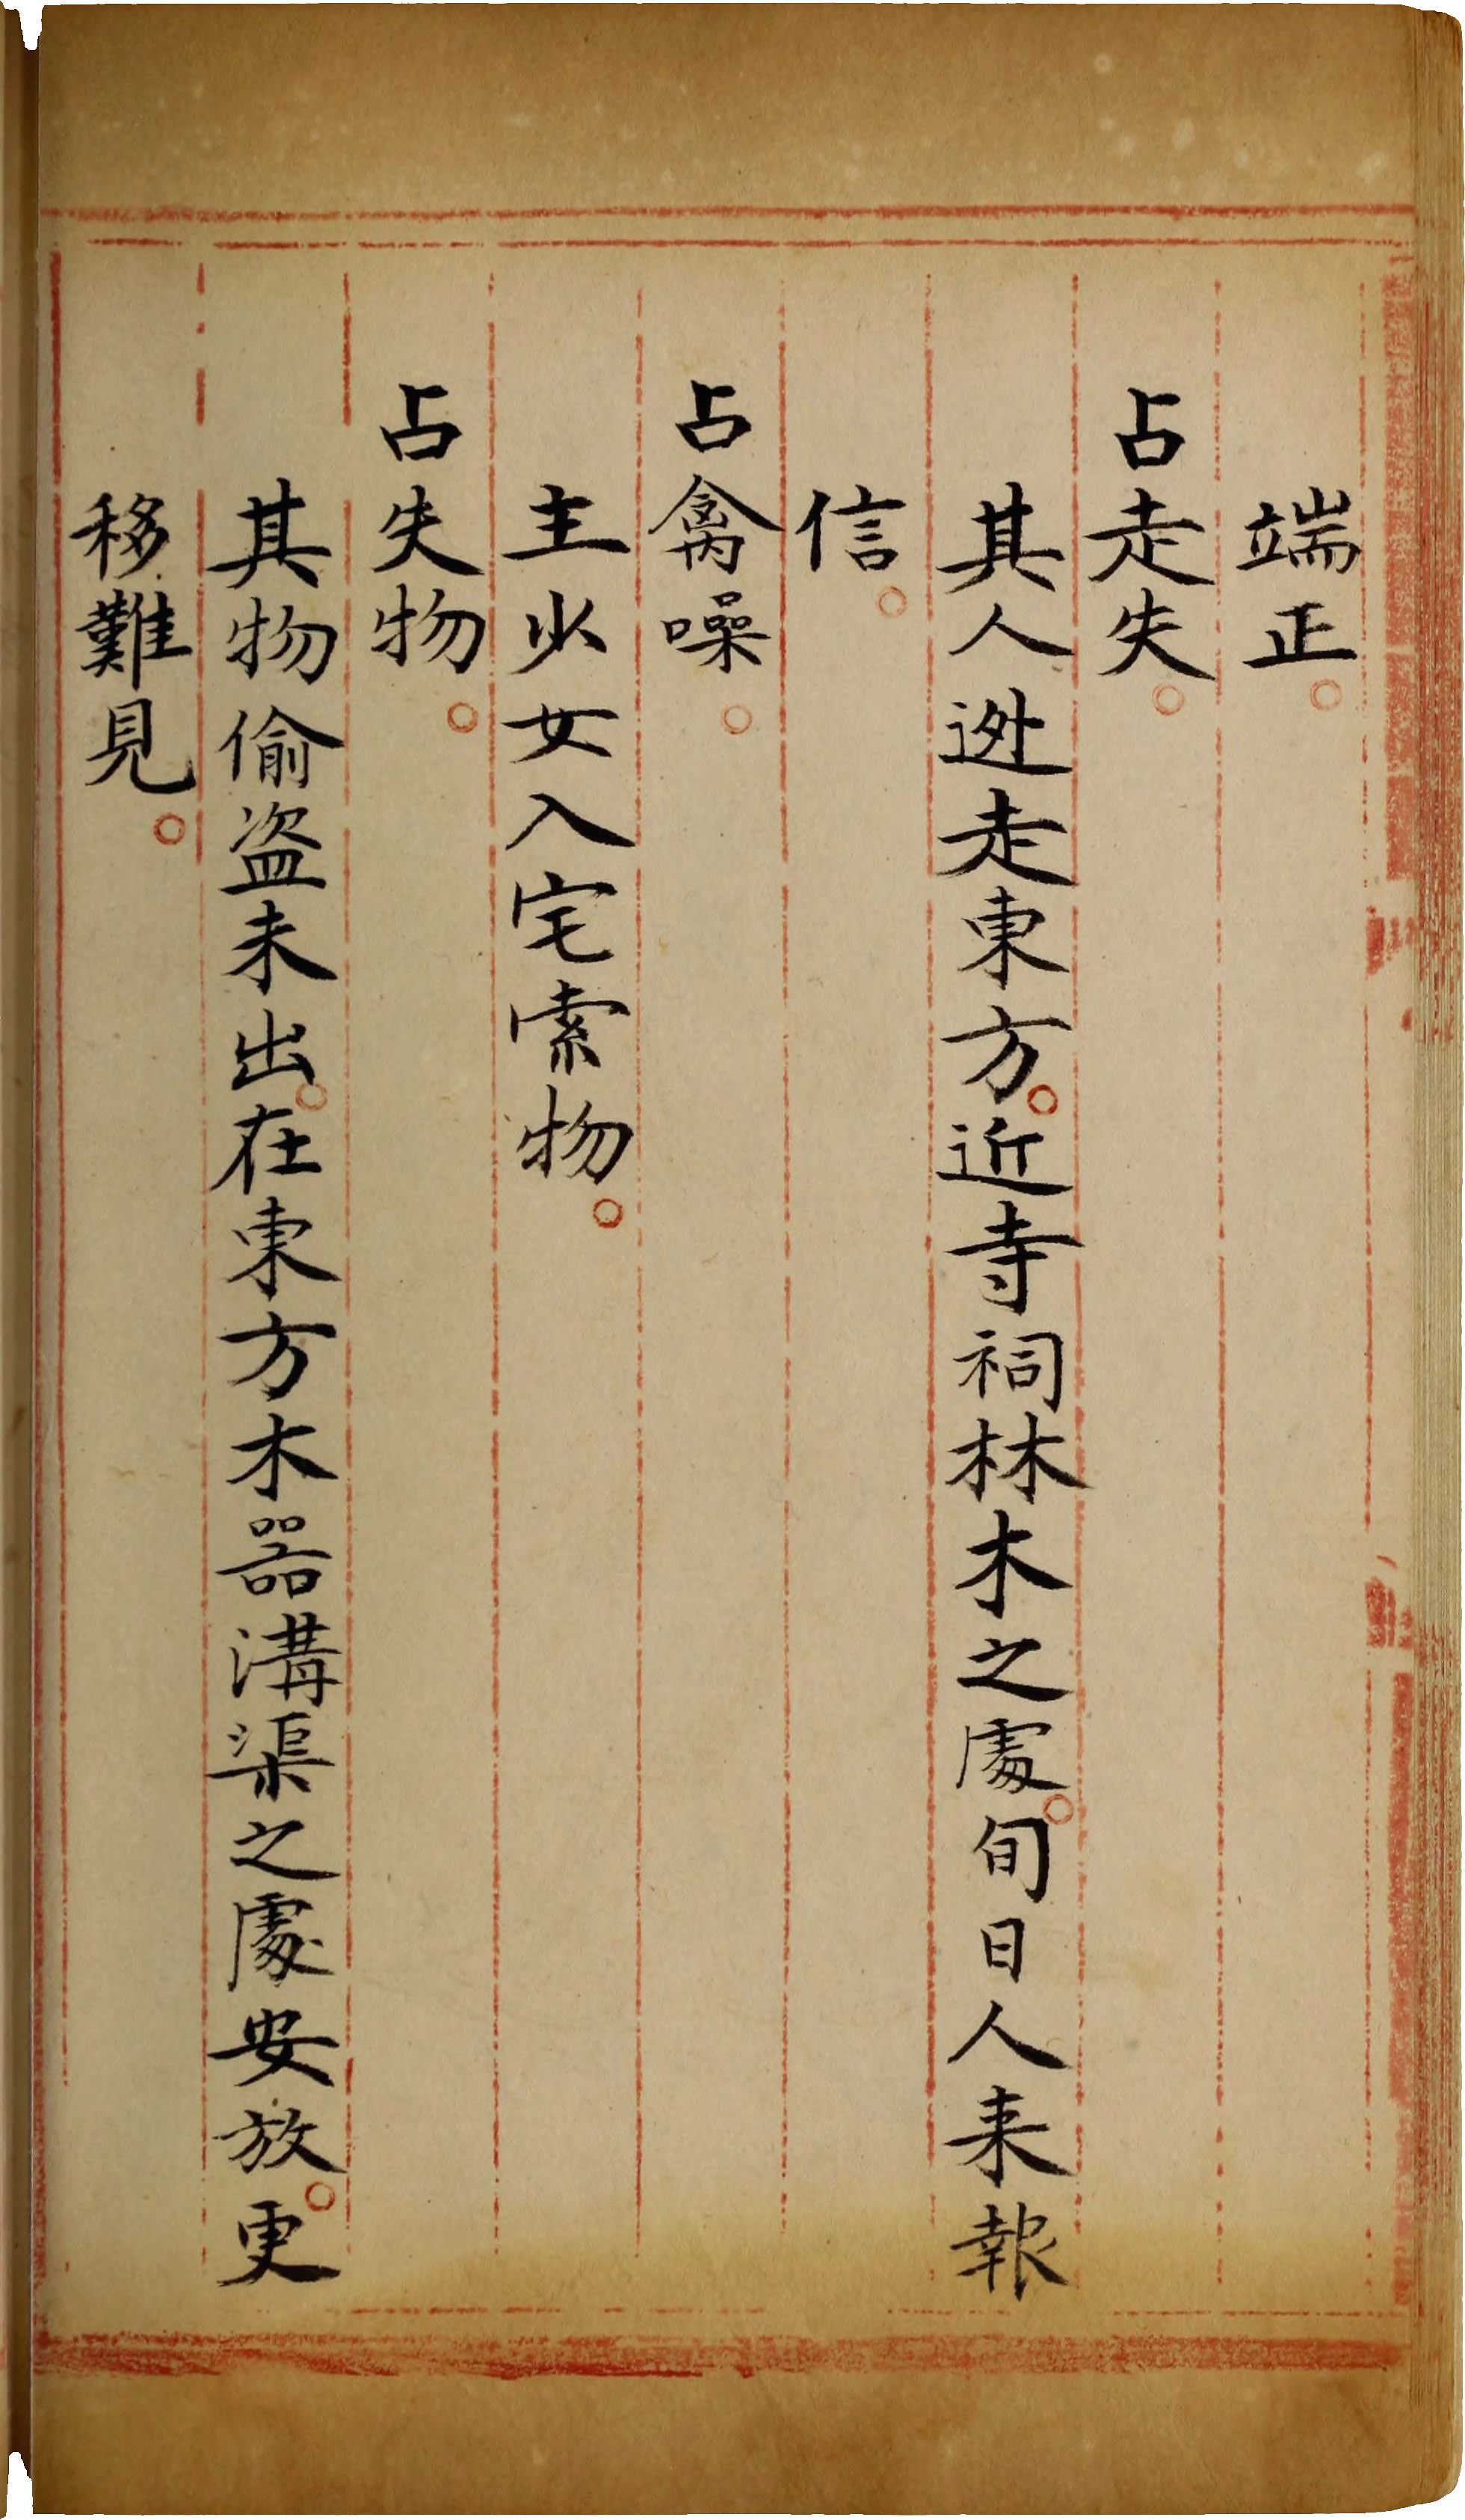 端正。
占走失。
其人迯走東方。近寺祠林木之處。旬日人来報
信。
占禽噪。
主少女入宅索物。
占失物。
其物偷盗未出。在東方木器溝渠之處安放。更
移難見。